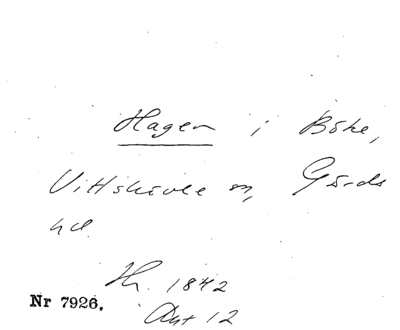 Hagen i Böke,
Vittskövle sn, Gärds
hd.
Hr. 1842
Akt 12
Nr 7926.